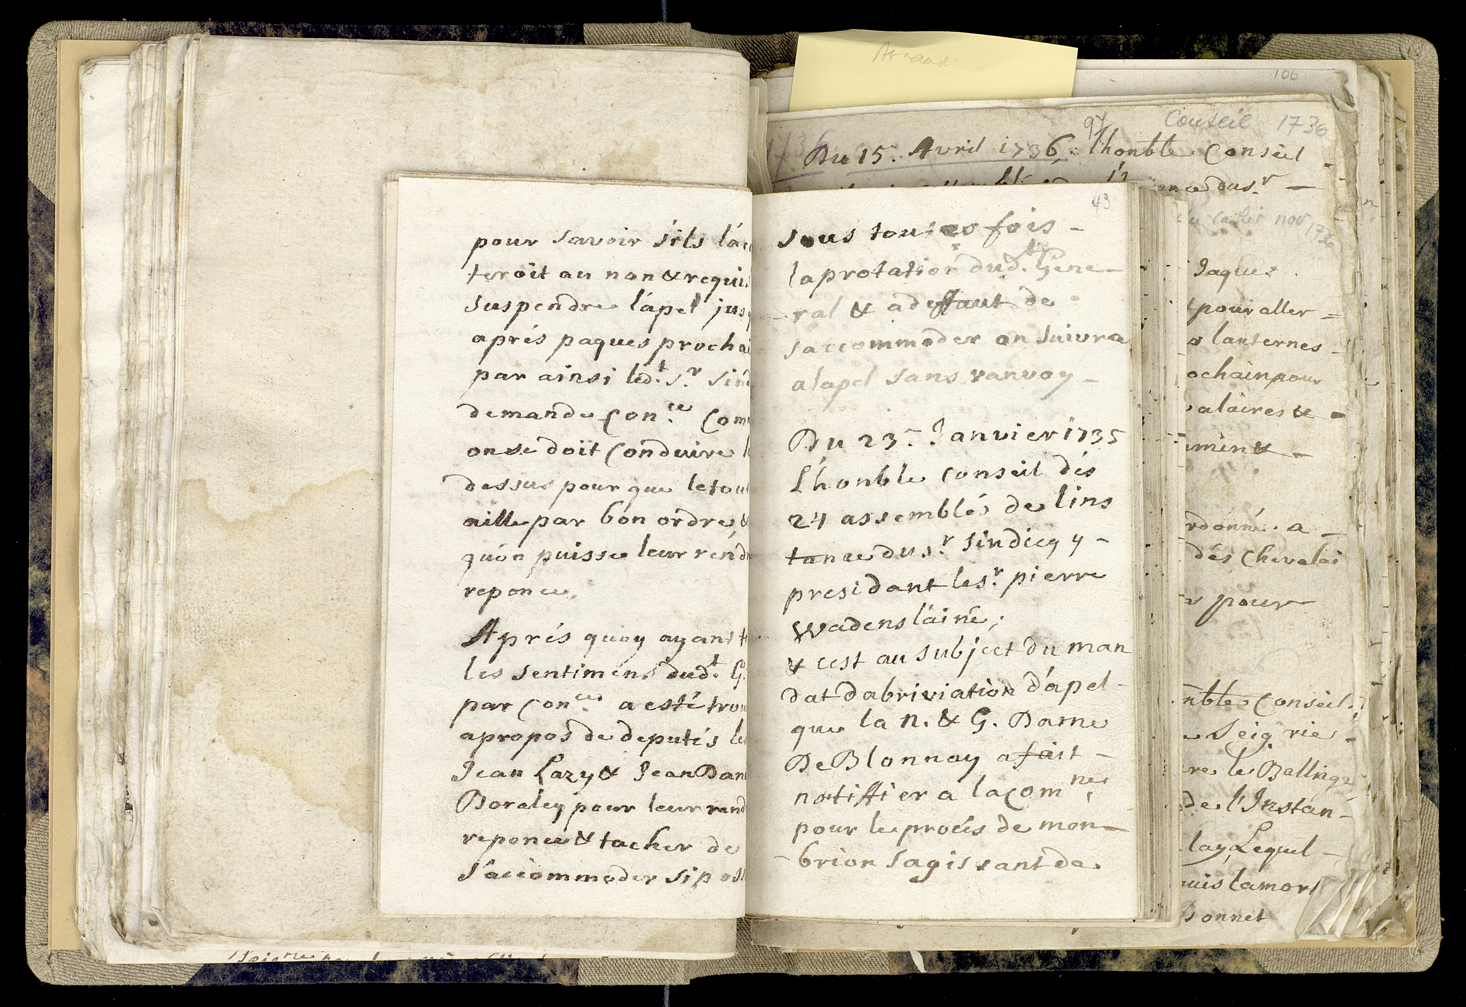 pour savoir sils lác
teroit au non & requis
suspendre lápel jusq
aprés paques prochai
par ainsi led.t s.r sin
demande Con.ce Com
on se doit Conduire l
dessus pour que le tout
aille par bon ordre &
quón puisse leur rend
reponce.
Aprés quoy ayant
les sentimens dud.t G.
par Con.ce a esté trou
apropos de deputés le
Jean Lazy & Jean Dan
Boraley pour leur rend
reponce & tacher de
s'accommoder si poss
Arnaud
106
97 Conseil 1736
1736
Du 15. Avril 1736. lhonble Conseil
43
sous toutes fois
la protation dud.t Gene
ral & a deffaut de
saccommoder on suivra
alapel sans ranvoy
Du 23. Janvier 1735
Lhonble Conseil dés
24 assemblés de lins
tance du s.r Sindicq y
presidant le s.r pierre
Wadens láiné;
& cest au subject du man
dat dabriviation dápel
que la N. & G. Dame
De Blonnay a fait
notiffier a la com.ne
pour le procés de mon
brion sagissant de
Jaques
pour aller
lanternes
ochain pour
alaires &
rdonné. a
dés Chevalai
pour
nble Conseil
Seig.rie
re le Ballinq
de l'Instan
lay Lequel
uis lamort
Bonnet